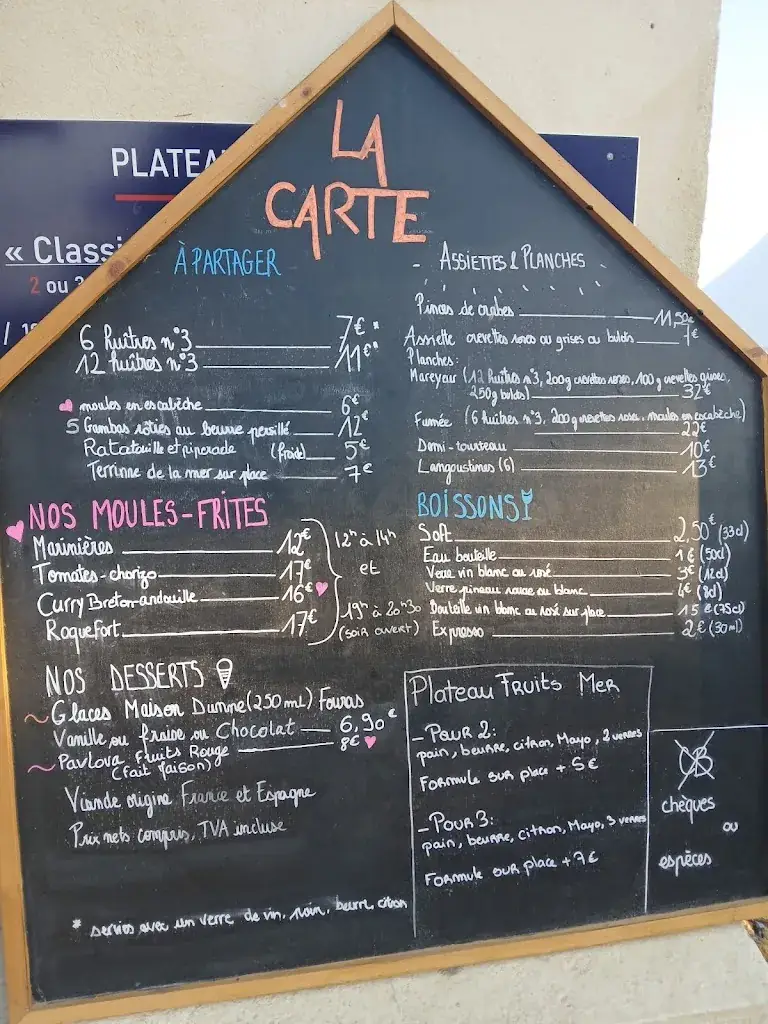 PLATEA
« Classi
2 ou 3
LA
CARTE
À PARTAGER
6 huîtres n°3 7€*
12 huîtres n°3 11€*
moules en escabèche 6€
5 Gambas rôties au beurre persillé 12€
Ratatouille et piperade (froide) 5€
Terrinne de la mer sur place 7€
NOS MOULES-FRITES
Marinières 12€
Tomates-chorizo 17€
Curry Breton-andouille 16€
Roquefort 17€
12h à 14h
et
19h à 20h30
(soir ouvert)
NOS DESSERTS
~ Glaces Maison Durine (250 ml) Fouras
Vanille ou fraise ou Chocolat 6,90€
~ Pavlova Fruits Rouge 8€
(fait Maison)
Viande origine France et Espagne
Prix nets compris, TVA incluse
* servies avec un verre de vin, pain, beurre, citron
- ASSIETTES & PLANCHES
Pinces de crabes 11,50€
Assiette crevettes roses ou grises ou bulots 7€
Planches:
Mareyeur (12 huitres n°3, 200g crevettes roses, 100g crevettes grises,
250g bulots) 32€
Fumée (6 huitres n°3, 200g crevettes roses, moules en escabèche)
22€
Demi-tourteau 10€
Langoustines (6) 13€
BOISSONS
Soft 2,50€ (33cl)
Eau bouteille 1€ (50cl)
Verre vin blanc ou rosé 3€ (12cl)
Verre pineau rouge ou blanc 4€ (8cl)
Bouteille vin blanc ou rosé sur place 15€ (75cl)
Expresso 2€ (30ml)
Plateau Fruits Mer
- Pour 2:
pain, beurre, citron, Mayo, 2 verres
Formule sur place + 5€
- Pour 3:
pain, beurre, citron, Mayo, 3 verres
Formule sur place + 7€
CB
chèques
ou
espèces